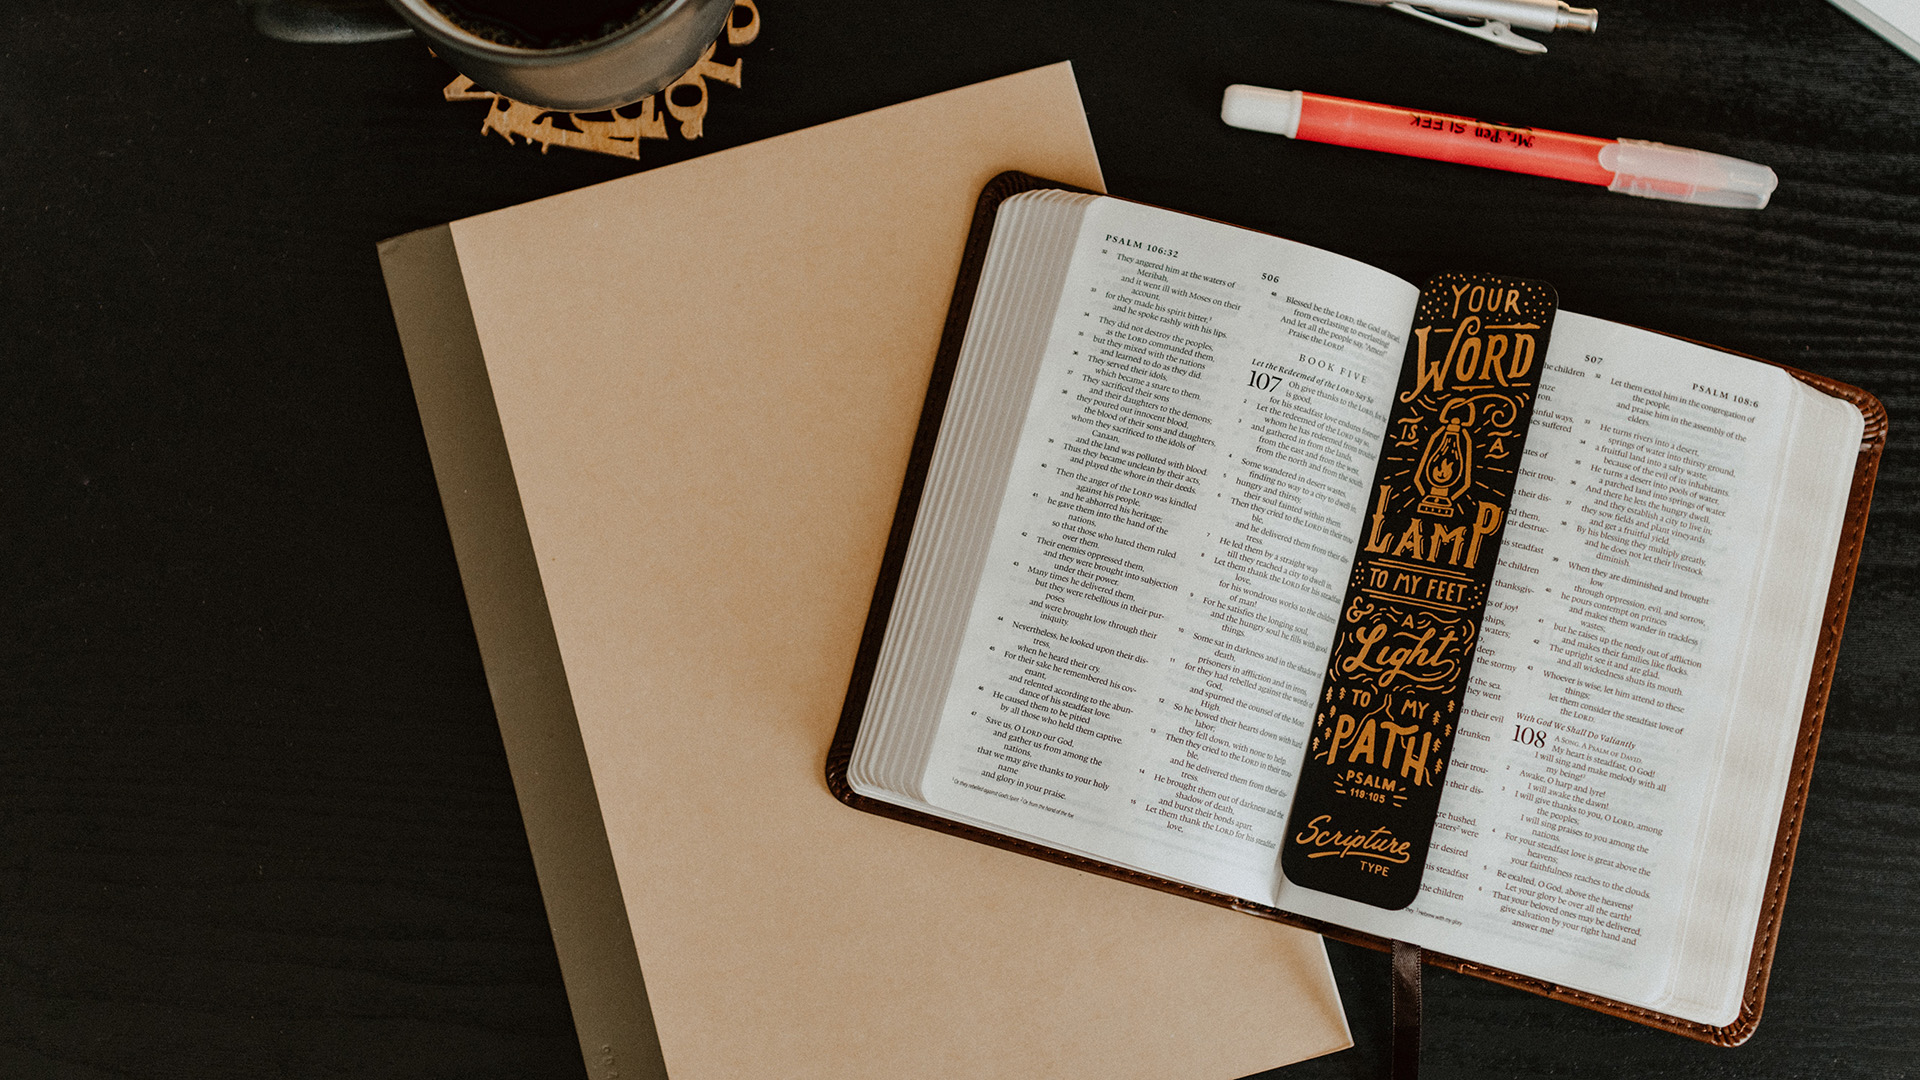 Mr. Pen SLEEK
PSALM 106:32
506
32 They angered him at the waters of
Meribah,
and it went ill with Moses on their
account,
33 for they made his spirit bitter,
and he spoke rashly with his lips.
34 They did not destroy the peoples,
as the LORD commanded them,
35 but they mixed with the nations
and learned to do as they did.
36 They served their idols,
which became a snare to them.
37 They sacrificed their sons
and their daughters to the demons;
38 they poured out innocent blood,
the blood of their sons and daughters,
whom they sacrificed to the idols of
Canaan,
and the land was polluted with blood.
39 Thus they became unclean by their acts,
and played the whore in their deeds.
40 Then the anger of the LORD was kindled
against his people,
and he abhorred his heritage;
41 he gave them into the hand of the
nations,
so that those who hated them ruled
over them.
42 Their enemies oppressed them,
and they were brought into subjection
under their power.
43 Many times he delivered them,
but they were rebellious in their pur-
poses
and were brought low through their
iniquity.
44 Nevertheless, he looked upon their dis-
tress,
when he heard their cry.
45 For their sake he remembered his cov-
enant,
and relented according to the abun-
dance of his steadfast love.
46 He caused them to be pitied
by all those who held them captive.
47 Save us, O LORD our God,
and gather us from among the
nations,
that we may give thanks to your holy
name
and glory in your praise.
48 Blessed be the LORD, the God of Israel,
from everlasting to everlasting!
And let all the people say, "Amen!"
Praise the LORD!
BOOK FIVE
Let the Redeemed of the LORD Say So
107 Oh give thanks to the LORD, for he
is good,
for his steadfast love endures forever!
2 Let the redeemed of the LORD say so,
whom he has redeemed from trouble
3 and gathered in from the lands,
from the east and from the west,
from the north and from the south.
4 Some wandered in desert wastes,
finding no way to a city to dwell in;
5 hungry and thirsty,
their soul fainted within them.
6 Then they cried to the LORD in their trou-
ble,
and he delivered them from their dis-
tress.
7 He led them by a straight way
till they reached a city to dwell in.
8 Let them thank the LORD for his steadfast
love,
for his wondrous works to the children
of man!
9 For he satisfies the longing soul,
and the hungry soul he fills with good
things.
10 Some sat in darkness and in the shadow of
death,
prisoners in affliction and in irons,
11 for they had rebelled against the words of
God,
and spurned the counsel of the Most
High.
12 So he bowed their hearts down with hard
labor;
they fell down, with none to help.
13 Then they cried to the LORD in their trou-
ble,
and he delivered them from their dis-
tress.
14 He brought them out of darkness and the
shadow of death,
and burst their bonds apart.
15 Let them thank the LORD for his steadfast
love,
YOUR
WORD
IS A
LAMP
TO MY FEET
& A
Light
TO MY
PATH
PSALM
119:105
Scripture
TYPE
507
PSALM 108:6
32 Let them extol him in the congregation of
the people,
and praise him in the assembly of the
elders.
33 He turns rivers into a desert,
springs of water into thirsty ground,
34 a fruitful land into a salty waste,
because of the evil of its inhabitants.
35 He turns a desert into pools of water,
a parched land into springs of water.
36 And there he lets the hungry dwell,
and they establish a city to live in;
37 they sow fields and plant vineyards
and get a fruitful yield.
38 By his blessing they multiply greatly,
and he does not let their livestock
diminish.
39 When they are diminished and brought
low
through oppression, evil, and sorrow,
40 he pours contempt on princes
and makes them wander in trackless
wastes;
41 but he raises up the needy out of affliction
and makes their families like flocks.
42 The upright see it and are glad,
and all wickedness shuts its mouth.
43 Whoever is wise, let him attend to these
things;
let them consider the steadfast love of
the LORD.
With God We Shall Do Valiantly
108 A SONG. A PSALM OF DAVID.
My heart is steadfast, O God!
I will sing and make melody with all
my being!
2 Awake, O harp and lyre!
I will awake the dawn!
3 I will give thanks to you, O LORD, among
the peoples;
I will sing praises to you among the
nations.
4 For your steadfast love is great above the
heavens;
your faithfulness reaches to the clouds.
5 Be exalted, O God, above the heavens!
Let your glory be over all the earth!
6 That your beloved ones may be delivered,
give salvation by your right hand and
answer me!